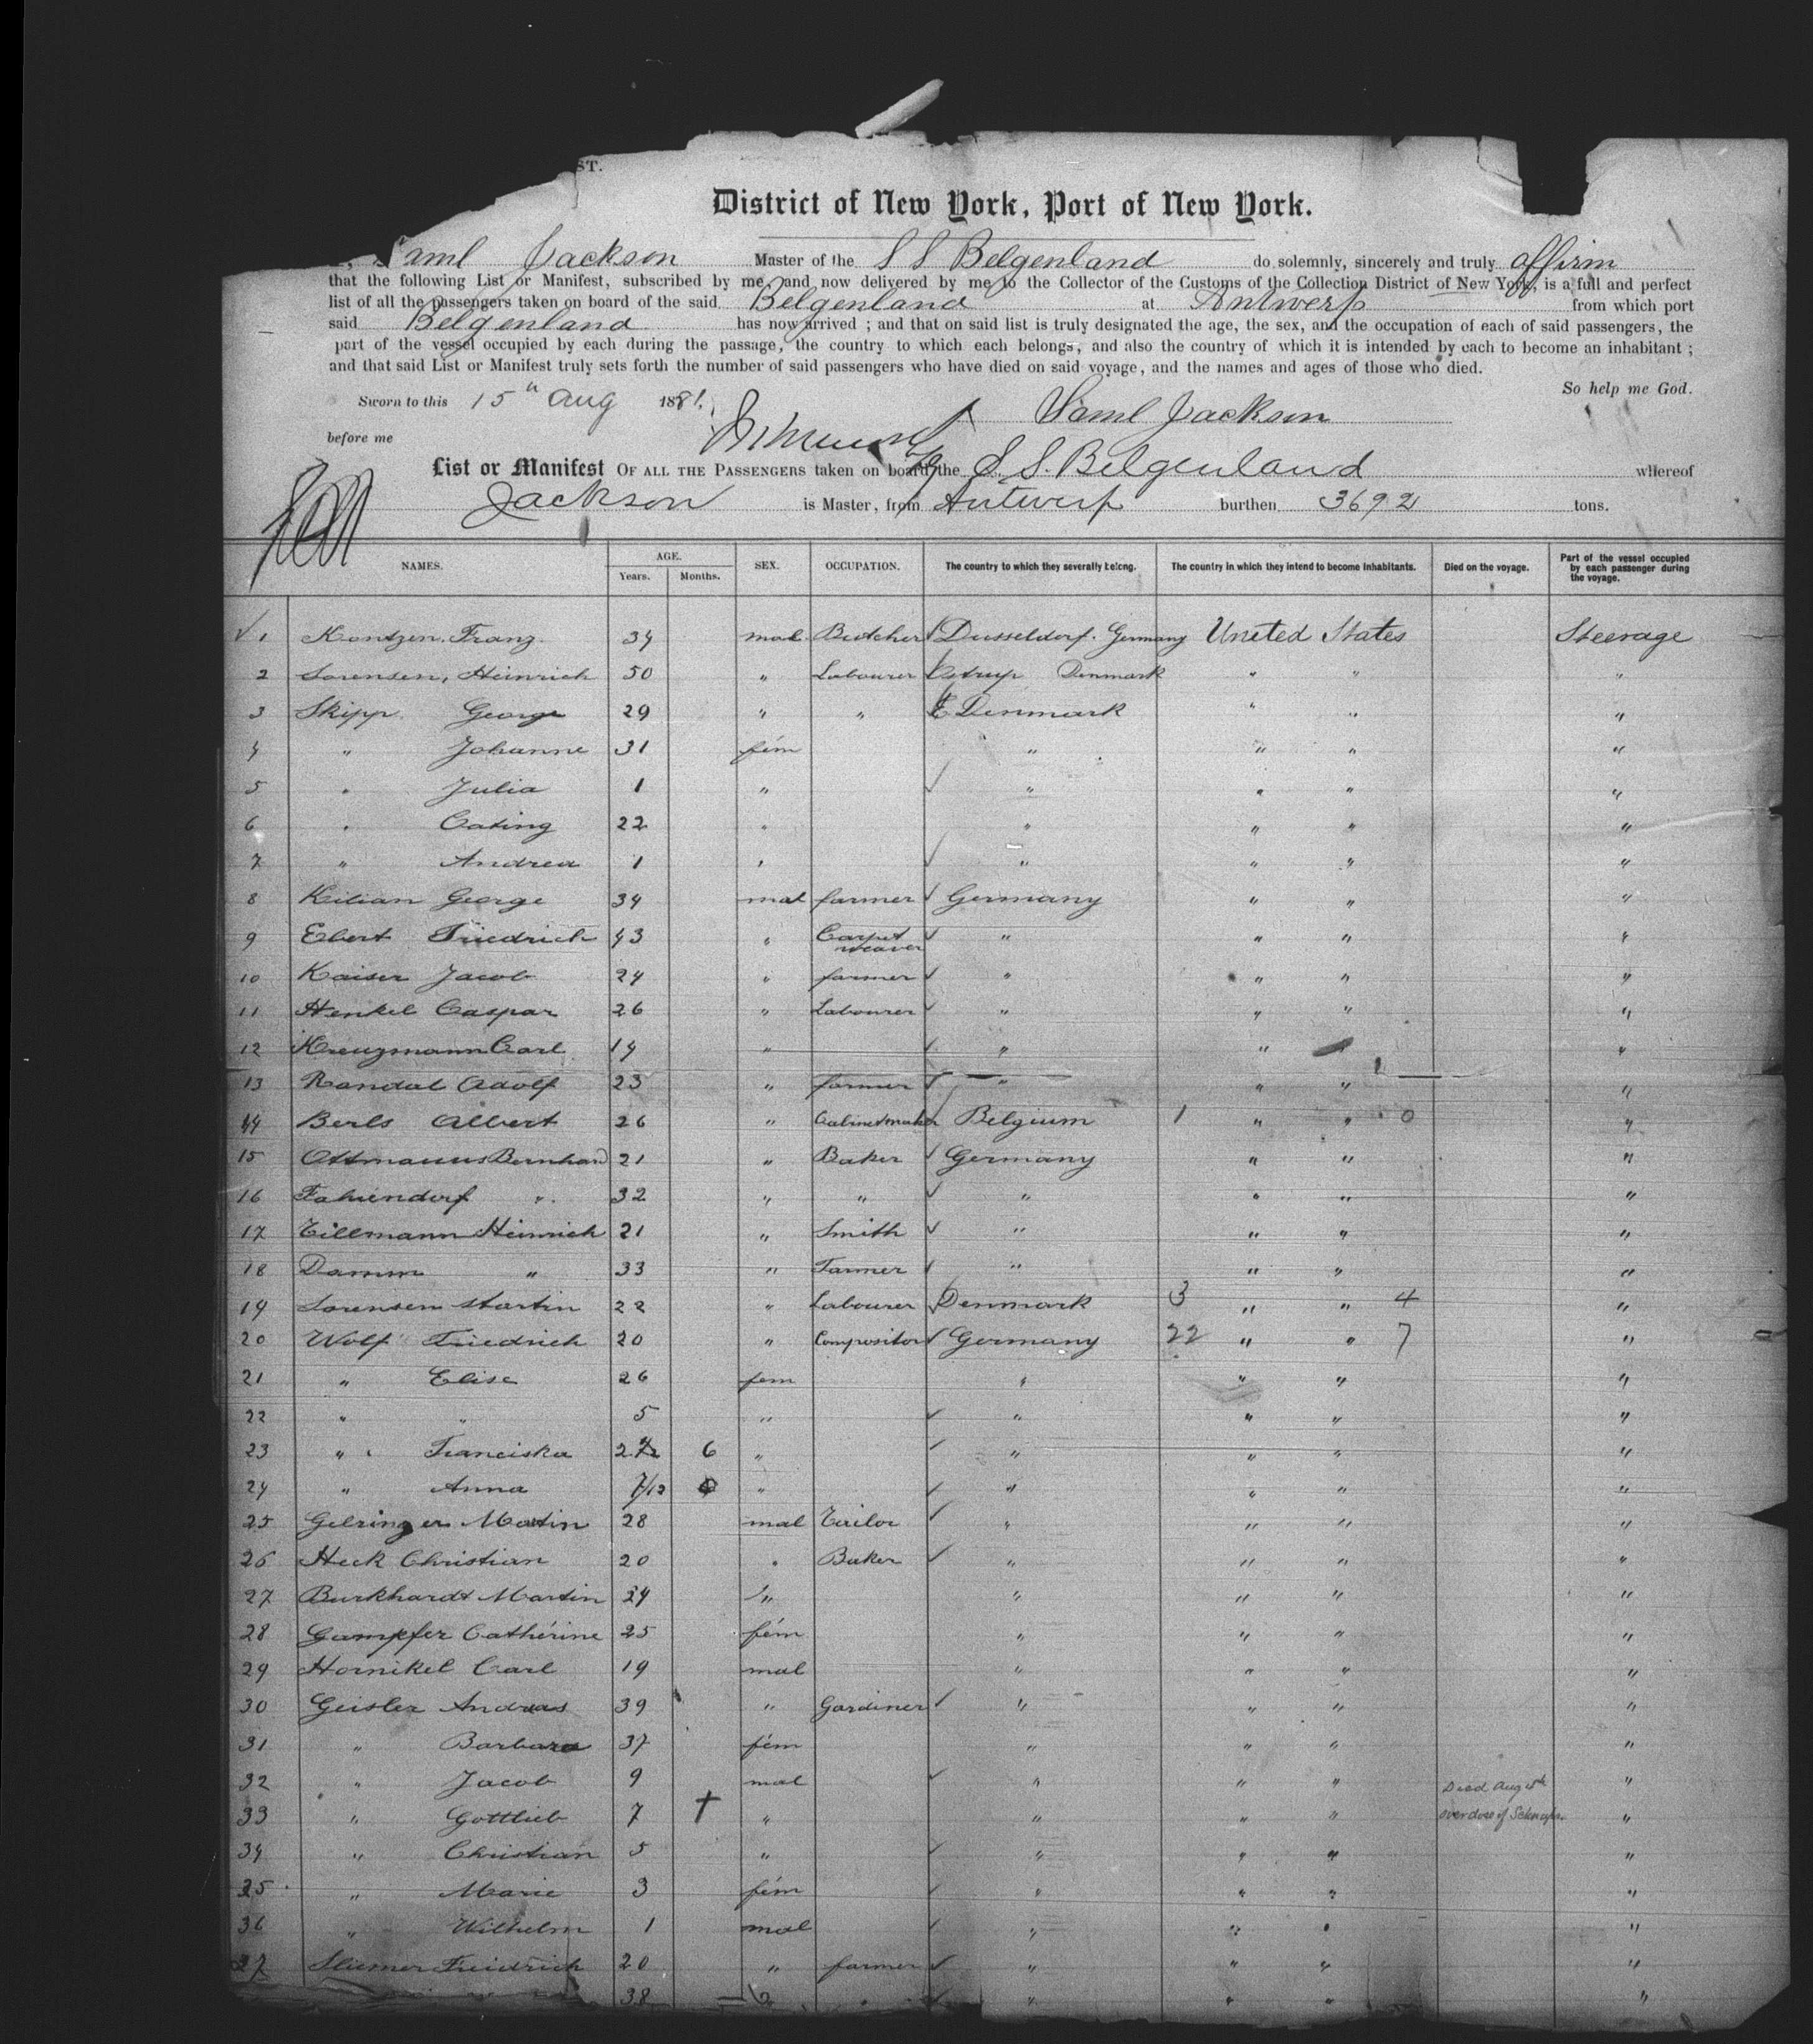 ST.
District of New York, Port of New York.
Saml Jackson Master of the S S Belgenland do solemnly, sincerely and truly affirm
that the following List or Manifest, subscribed by me, and now delivered by me to the Collector of the Customs of the Collection District of New York, is a full and perfect
list of all the passengers taken on board of the said Belgenland at Antwerp from which port
said Belgenland has now arrived ; and that on said list is truly designated the age, the sex, and the occupation of each of said passengers, the
part of the vessel occupied by each during the passage, the country to which each belongs, and also the country of which it is intended by each to become an inhabitant ;
and that said List or Manifest truly sets forth the number of said passengers who have died on said voyage, and the names and ages of those who died.
So help me God.
Sworn to this 15th Aug 1881. Saml Jackson
before me
List or Manifest OF ALL THE PASSENGERS taken on board the S. S. Belgenland whereof
Jackson is Master, from Antwerp burthen 3692 tons.
NAMES. AGE. Years. Months. SEX. OCCUPATION. The country to which they severally belong. The country in which they intend to become inhabitants. Died on the voyage. Part of the vessel occupied by each passenger during the voyage.
1 Kontzen, Franz 34 mal Butcher Dusseldorf. Germany United States Steerage
2 Sorensen, Heinrich 50 " Labourer Ostrup Denmark " " "
3 Skipp George 29 " " Denmark " " "
4 " Johanne 31 fem " " " "
5 " Julia 1 " " " " "
6 " Cating 22 " " " " "
7 " Andrea 1 " " " " "
8 Kilian George 34 mal farmer Germany " " "
9 Ebert Friedrich 43 " Carpet weaver " " " "
10 Kaiser Jacob 24 " farmer " " " "
11 Henkel Caspar 26 " Labourer " " " "
12 Kreuzmann Carl 14 " " " " "
13 Randal Adolf 23 " farmer " " " "
14 Berls Albert 26 " Cabinetmaker Belgium 1 " " 0 "
15 Ottmanns Bernhard 21 " Baker Germany " " "
16 Fahrendorf " 32 " " " " " "
17 Tillmann Heinrich 21 " Smith " " " "
18 Damm " 33 " Farmer " " " "
19 Sorensen Martin 22 " Labourer Denmark 3 " " 4 "
20 Wolf Friedrich 20 " Compositor Germany 22 " " 7 "
21 " Elise 26 fem " " " "
22 " " 5 " " " " "
23 " Franciska 2 6 " " " " "
24 " Anna 7/12 " " " " "
25 Gelringer Martin 28 mal Tailor " " " "
26 Heck Christian 20 " Baker " " " "
27 Burkhardt Martin 24 " " " " "
28 Gampfer Cathérine 25 fem " " " "
29 Hornikel Carl 19 mal " " " "
30 Geisler Andreas 39 " Gardiner " " " "
31 " Barbara 37 fem " " " "
32 " Jacob 9 mal " " " "
33 " Gottlieb 7 † " " " " Died Aug 5th overdose of Schnapps "
34 " Christian 5 " " " " "
35 " Marie 3 fem " " " "
36 " Wilhelm 1 mal " " " "
37 Sliemer Freidrich 20 " farmer " " " "
38 " " " " "